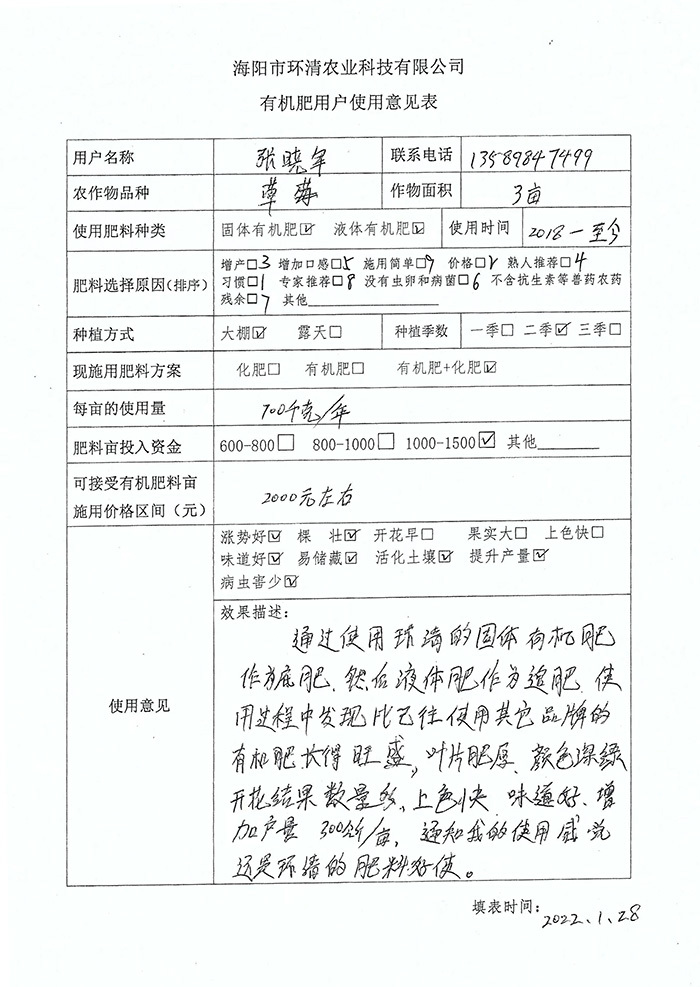 海阳市环清农业科技有限公司
有机肥用户使用意见表
用户名称 张晓军 联系电话 13589847499
农作物品种 草莓 作物面积 3亩
使用肥料种类 固体有机肥☑ 液体有机肥☑ 使用时间 2018一至今
肥料选择原因(排序) 增产□3 增加口感□5 施用简单□9 价格□2 熟人推荐□4
习惯□1 专家推荐□8 没有虫卵和病菌□6 不含抗生素等兽药农药
残余□7 其他
种植方式 大棚☑ 露天□ 种植季数 一季□ 二季☑ 三季□
现施用肥料方案 化肥□ 有机肥□ 有机肥+化肥☑
每亩的使用量 700千克/年
肥料亩投入资金 600-800□ 800-1000□ 1000-1500☑ 其他
可接受有机肥料亩
施用价格区间（元） 2000元左右
使用意见
涨势好☑ 棵 壮☑ 开花早□ 果实大□ 上色快□
味道好☑ 易储藏☑ 活化土壤☑ 提升产量☑
病虫害少☑
效果描述：
通过使用环清的固体有机肥
作为底肥、然后液体肥作为追肥、使
用过程中发现比已往使用其它品牌的
有机肥长得旺盛，叶片肥厚、颜色深绿
开花结果数量多、上色快 味道好、增
加产量 300斤/亩，通知我的使用感觉
还是环清的肥料好使。
填表时间：2022.1.28